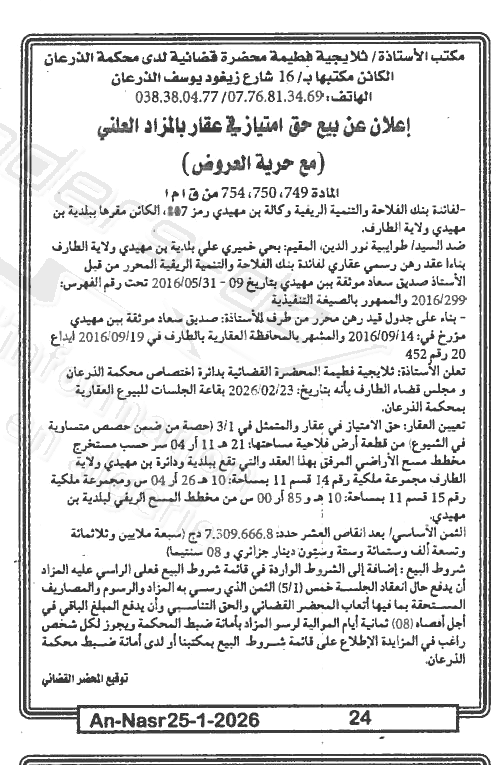 مكتب الأستاذة/ ثلايجية فطيمة محضرة قضائية لدى محكمة الذرعان
الكائن مكتبها بـ/ 16 شارع زيغود يوسف الذرعان
الهاتف: 038.38.04.77 /07.76.81.34.69
إعلان عن بيع حق امتياز في عقار بالمزاد العلني
(مع حرية العروض)
المادة 749، 750، 754 من ق ا م ا
-لفائدة بنك الفلاحة والتنمية الريفية وكالة بن مهيدي رمز، الكائن مقرها ببلدية بن
مهيدي ولاية الطارف.
ضد السيد/ طوايبية نور الدين، المقيم: بحي خميري علي بلدية بن مهيدي ولاية الطارف
بناءا عقد رهن رسمي عقاري لفائدة بنك الفلاحة والتنمية الريفية المحرر من قبل
الأستاذ صديق سعاد موثقة ببن مهيدي بتاريخ 09 - 2016/05/31 تحت رقم الفهرس:
2016/299 والممهور بالصيغة التنفيذية
- بناء على جدول قيد رهن محرر من طرف للأستاذة: صديق سعاد موثقة ببن مهيدي
مؤرخ في: 2016/09/14 والمشهر بالمحافظة العقارية بالطارف في 2016/09/19 ايداع
20 رقم 452
تعلن الأستاذة: ثلايجية فطيمة المحضرة القضائية بدائرة اختصاص محكمة الذرعان
و مجلس قضاء الطارف بأنه بتاريخ: 2026/02/23 بقاعة الجلسات للبيوع العقارية
بمحكمة الذرعان.
تعيين العقار: حق الامتياز في عقار والمتمثل في 3/1 (حصة من ضمن حصص متساوية
في الشيوع) من قطعة أرض فلاحية مساحتها: 21 هـ 11 أر 04 سر حسب مستخرج
مخطط مسح الأراضي المرفق بهذا العقد والتي تقع ببلدية ودائرة بن مهيدي ولاية
الطارف مجموعة ملكية رقم 14 قسم 11 بمساحة: 10 هـ 26 أر 04 س ومجموعة ملكية
رقم 15 قسم 11 بمساحة: 10 هـ و 85 أر 00 س من مخطط المسح الريفي لبلدية بن
مهيدي.
الثمن الأساسي/ بعد انقاص العشر حدد: 7.309.666.8 دج (سبعة ملايين وثلاثمائة
وتسعة ألف وستمائة وستة وستون دينار جزائري و 08 سنتيما)
شروط البيع : إضافة إلى الشروط الواردة في قائمة شروط البيع فعلى الراسي عليه المزاد
أن يدفع حال انعقاد الجلسة خمس (5/1) الثمن الذي رسي به المزاد والرسوم والمصاريف
المستحقة بما فيها أتعاب المحضر القضائي والحق التناسبي وأن يدفع المبلغ الباقي في
أجل أقصاه (08) ثمانية أيام الموالية لرسو المزاد بأمانة ضبط المحكمة ويجوز لكل شخص
راغب في المزايدة الإطلاع على قائمة شروط البيع بمكتبنا أو لدى أمانة ضبط محكمة
الذرعان.
توقيع المحضر القضائي
An-Nasr25-1-2026 24